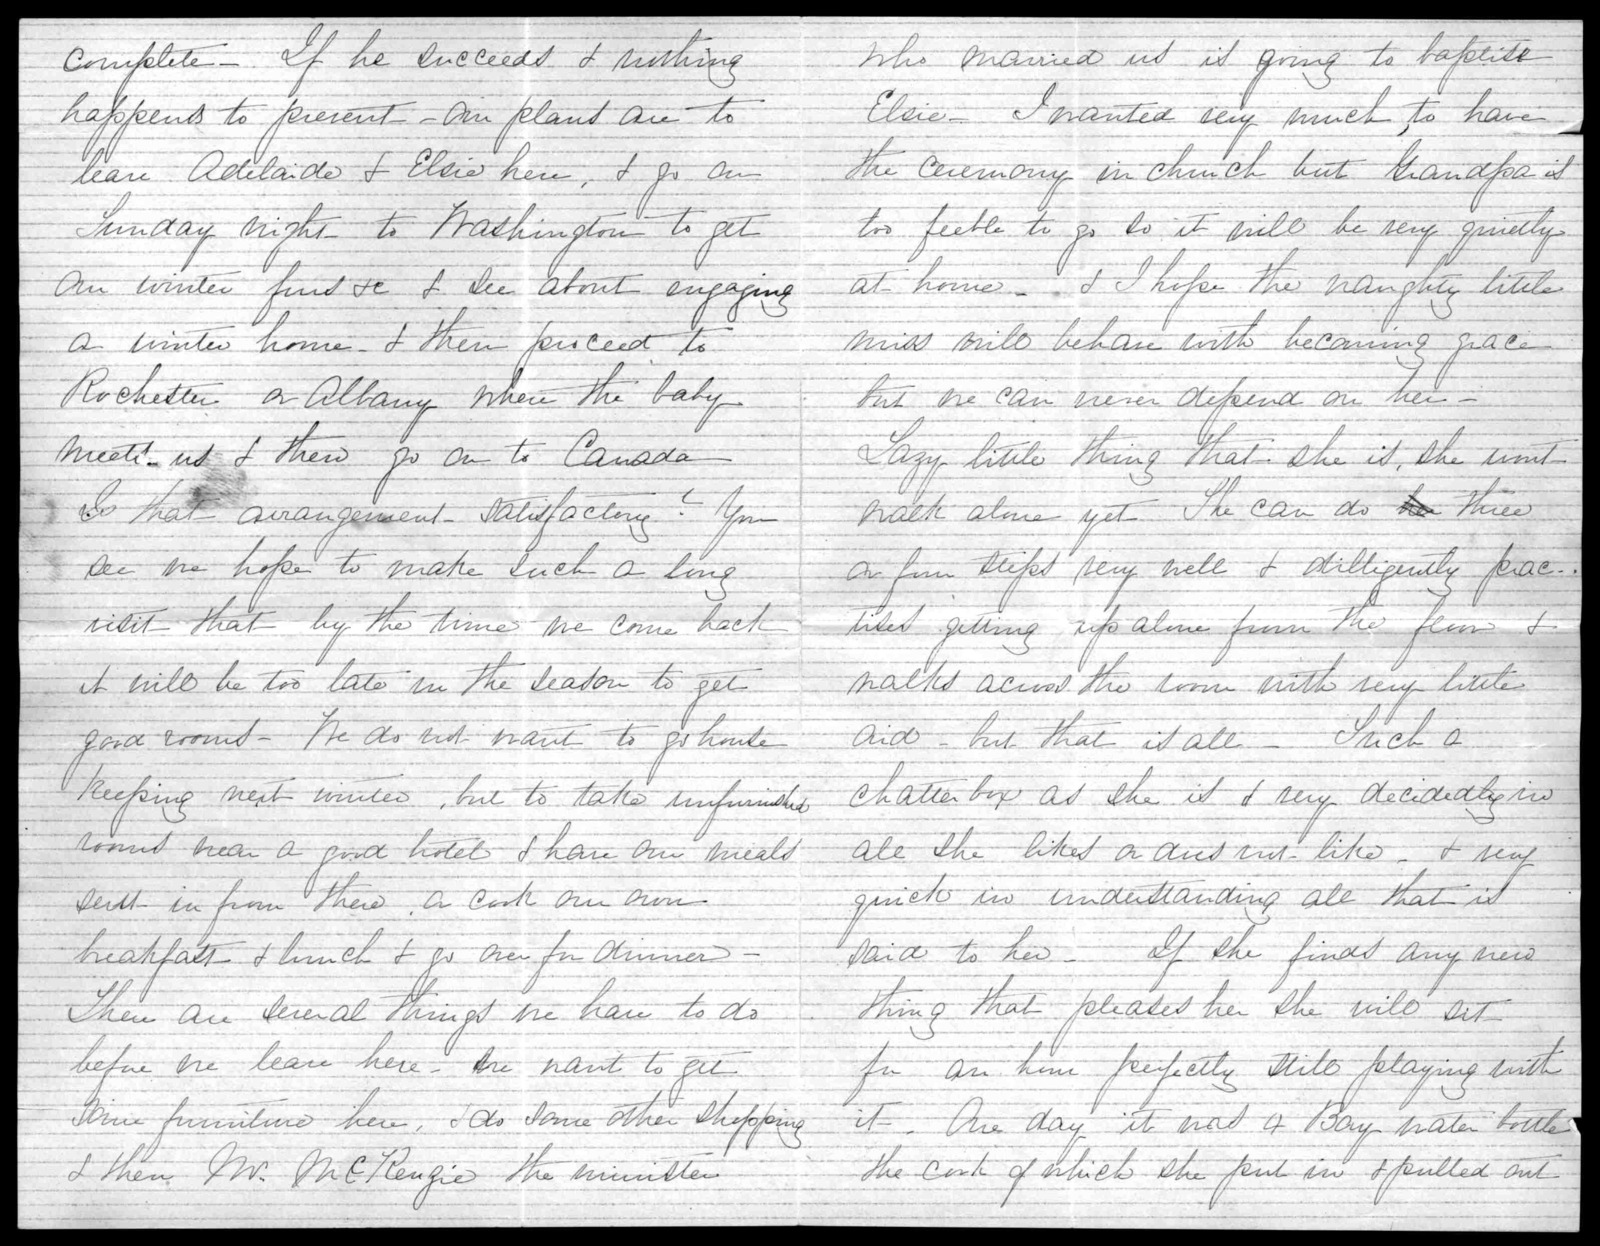 complete - If he succeeds & nothing
happens to prevent - our plans are to
leave Adelaide & Elsie here, & go on
Sunday night to Washington to get
our winter furs &c & see about engaging
a winter home - & then proceed to
Rochester or Albany where the baby
meets us & then go on to Canada
Is that arrangement satisfactory? You
see we hope to make such a long
visit that by the time we come back
it will be too late in the season to get
good rooms - We do not want to go house
keeping next winter, but to take unfurnished
rooms near a good hotel & have our meals
sent in from there, or cook our own
breakfast & lunch & go over for dinner -
There are several things we have to do
before we leave here - we want to get
some furniture here, & do some other shopping
& then Mr. McKenzie the minister
who married us is going to baptise
Elsie - I wanted very much to have
the ceremony in church but Grandpa is
too feeble to go so it will be very quietly
at home - & I hope the naughty little
miss will behave with becoming grace
but we can never depend on her -
Lazy little thing that she is, she wont
walk alone yet She can do three
or four steps very well & dilligently prac-
tises getting up alone from the floor &
walks across the room with very little
aid - but that is all - Such a
chatter box as she is & very decidedly in
all she likes or does not like - & very
quick in understanding all that is
said to her - If she finds any new
thing that pleases her she will sit
for an hour perfectly still playing with
it - One day it was a Bay water bottle
the cork of which she put in & pulled out